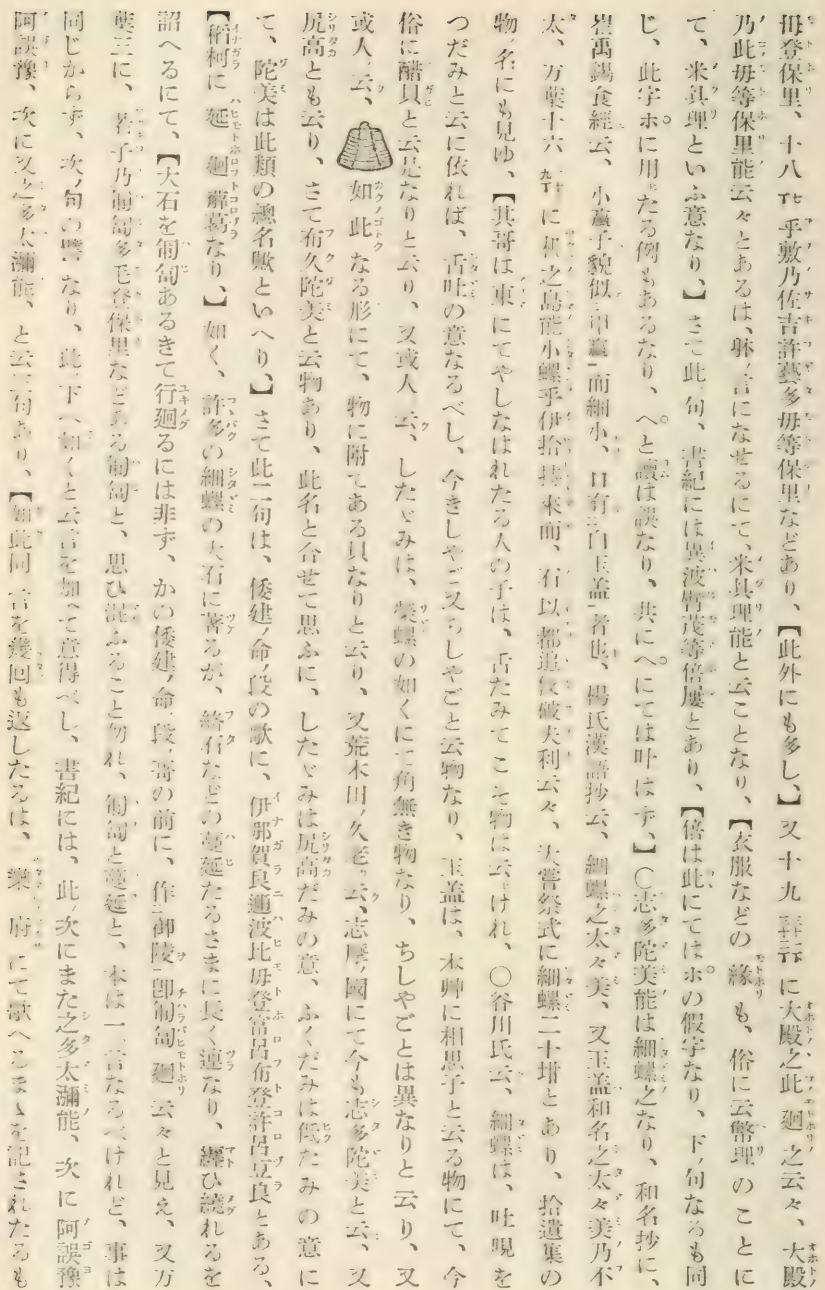 毋登保里、十八に乎敷乃佐吉許藝多毋等保里などあり、【此外にも多し、】又十九に大殿之此廻之云々、大殿
乃此毋等保里能云々とあるは、躰言になせるにて、米具理能と云ことなり、【衣服などの緣も、俗に云幣理のことに
て、米具理といふ意なり、】さて此句、書紀には異波比茂等倍屢とあり、【倍は此にてはホの假字なり、下句なるも同
じ、此字ホに用たる例もあるなり、へと讀は誤なり、共にへにては叶はず、】〇志多陀美能は細螺之なり、和名抄に、
崔禹錫食經云、小蠃子貌似甲蠃而細小、口有白玉盖者也、楊氏漢語抄云、細螺之太々美、又玉盖和名之太々美乃不
太、万葉十六に机之島能小螺乎伊拾持來而、石以都追伎破夫利云々、大嘗祭式に細螺二十坩とあり、拾遺集の
物名にも見ゆ、【其哥は東にてやしなはれたる人の子は、舌たみてこそ物は云けれ、〇谷川氏云、細螺は、吐哯を
つだみと云に依れば、舌吐の意なるべし、今きしやご又ちしやごと云物なり、玉盖は、本艸に相思子と云る物にて、今
俗に醋貝と云是なりと云り、又或人云、したゞみは、榮螺の如くにて角無き物なり、ちしやごとは異なりと云り、又
或人云、如此なる形にて、物に附てある貝なりと云り、又荒木田久老云、志摩國にて今も志多陀美と云、又
尻高とも云り、さて布久陀美と云物あり、此名と合せて思ふに、したゞみは尻高だみの意、ふくだみは低だみの意に
て、陀美は此類の總名歟といへり、】さて此二句は、倭建命段の歌に、伊那賀良邇波比毋登富呂布登許呂豆良とある、
【稻柯に延廻薢葛なり、】如く、許多の細螺の大石に著るが、絡石などの蔓延たるさまに長く連なり、纏ひ繞れるを
詔へるにて、【大石を匍匐あるきて行廻るには非ず、かの倭建命段哥の前に、作御陵卽匍匐廻云々と見え、又万
葉三に、若子乃匍匐多毛登保里などある匍匐と、思ひ混ふること勿れ、匍匐と蔓延と、本は一言なるべけれど、事は
同じからず、次句の譬なり、此下へ如くと云言を加へて意得べし、書紀には、此次にまた之多太瀰能、次に阿誤豫
阿誤豫、次に又之多太瀰能、と云三句あり、【如此同言を幾回も返したるは、樂府にて歌へるまゝを記されたるも